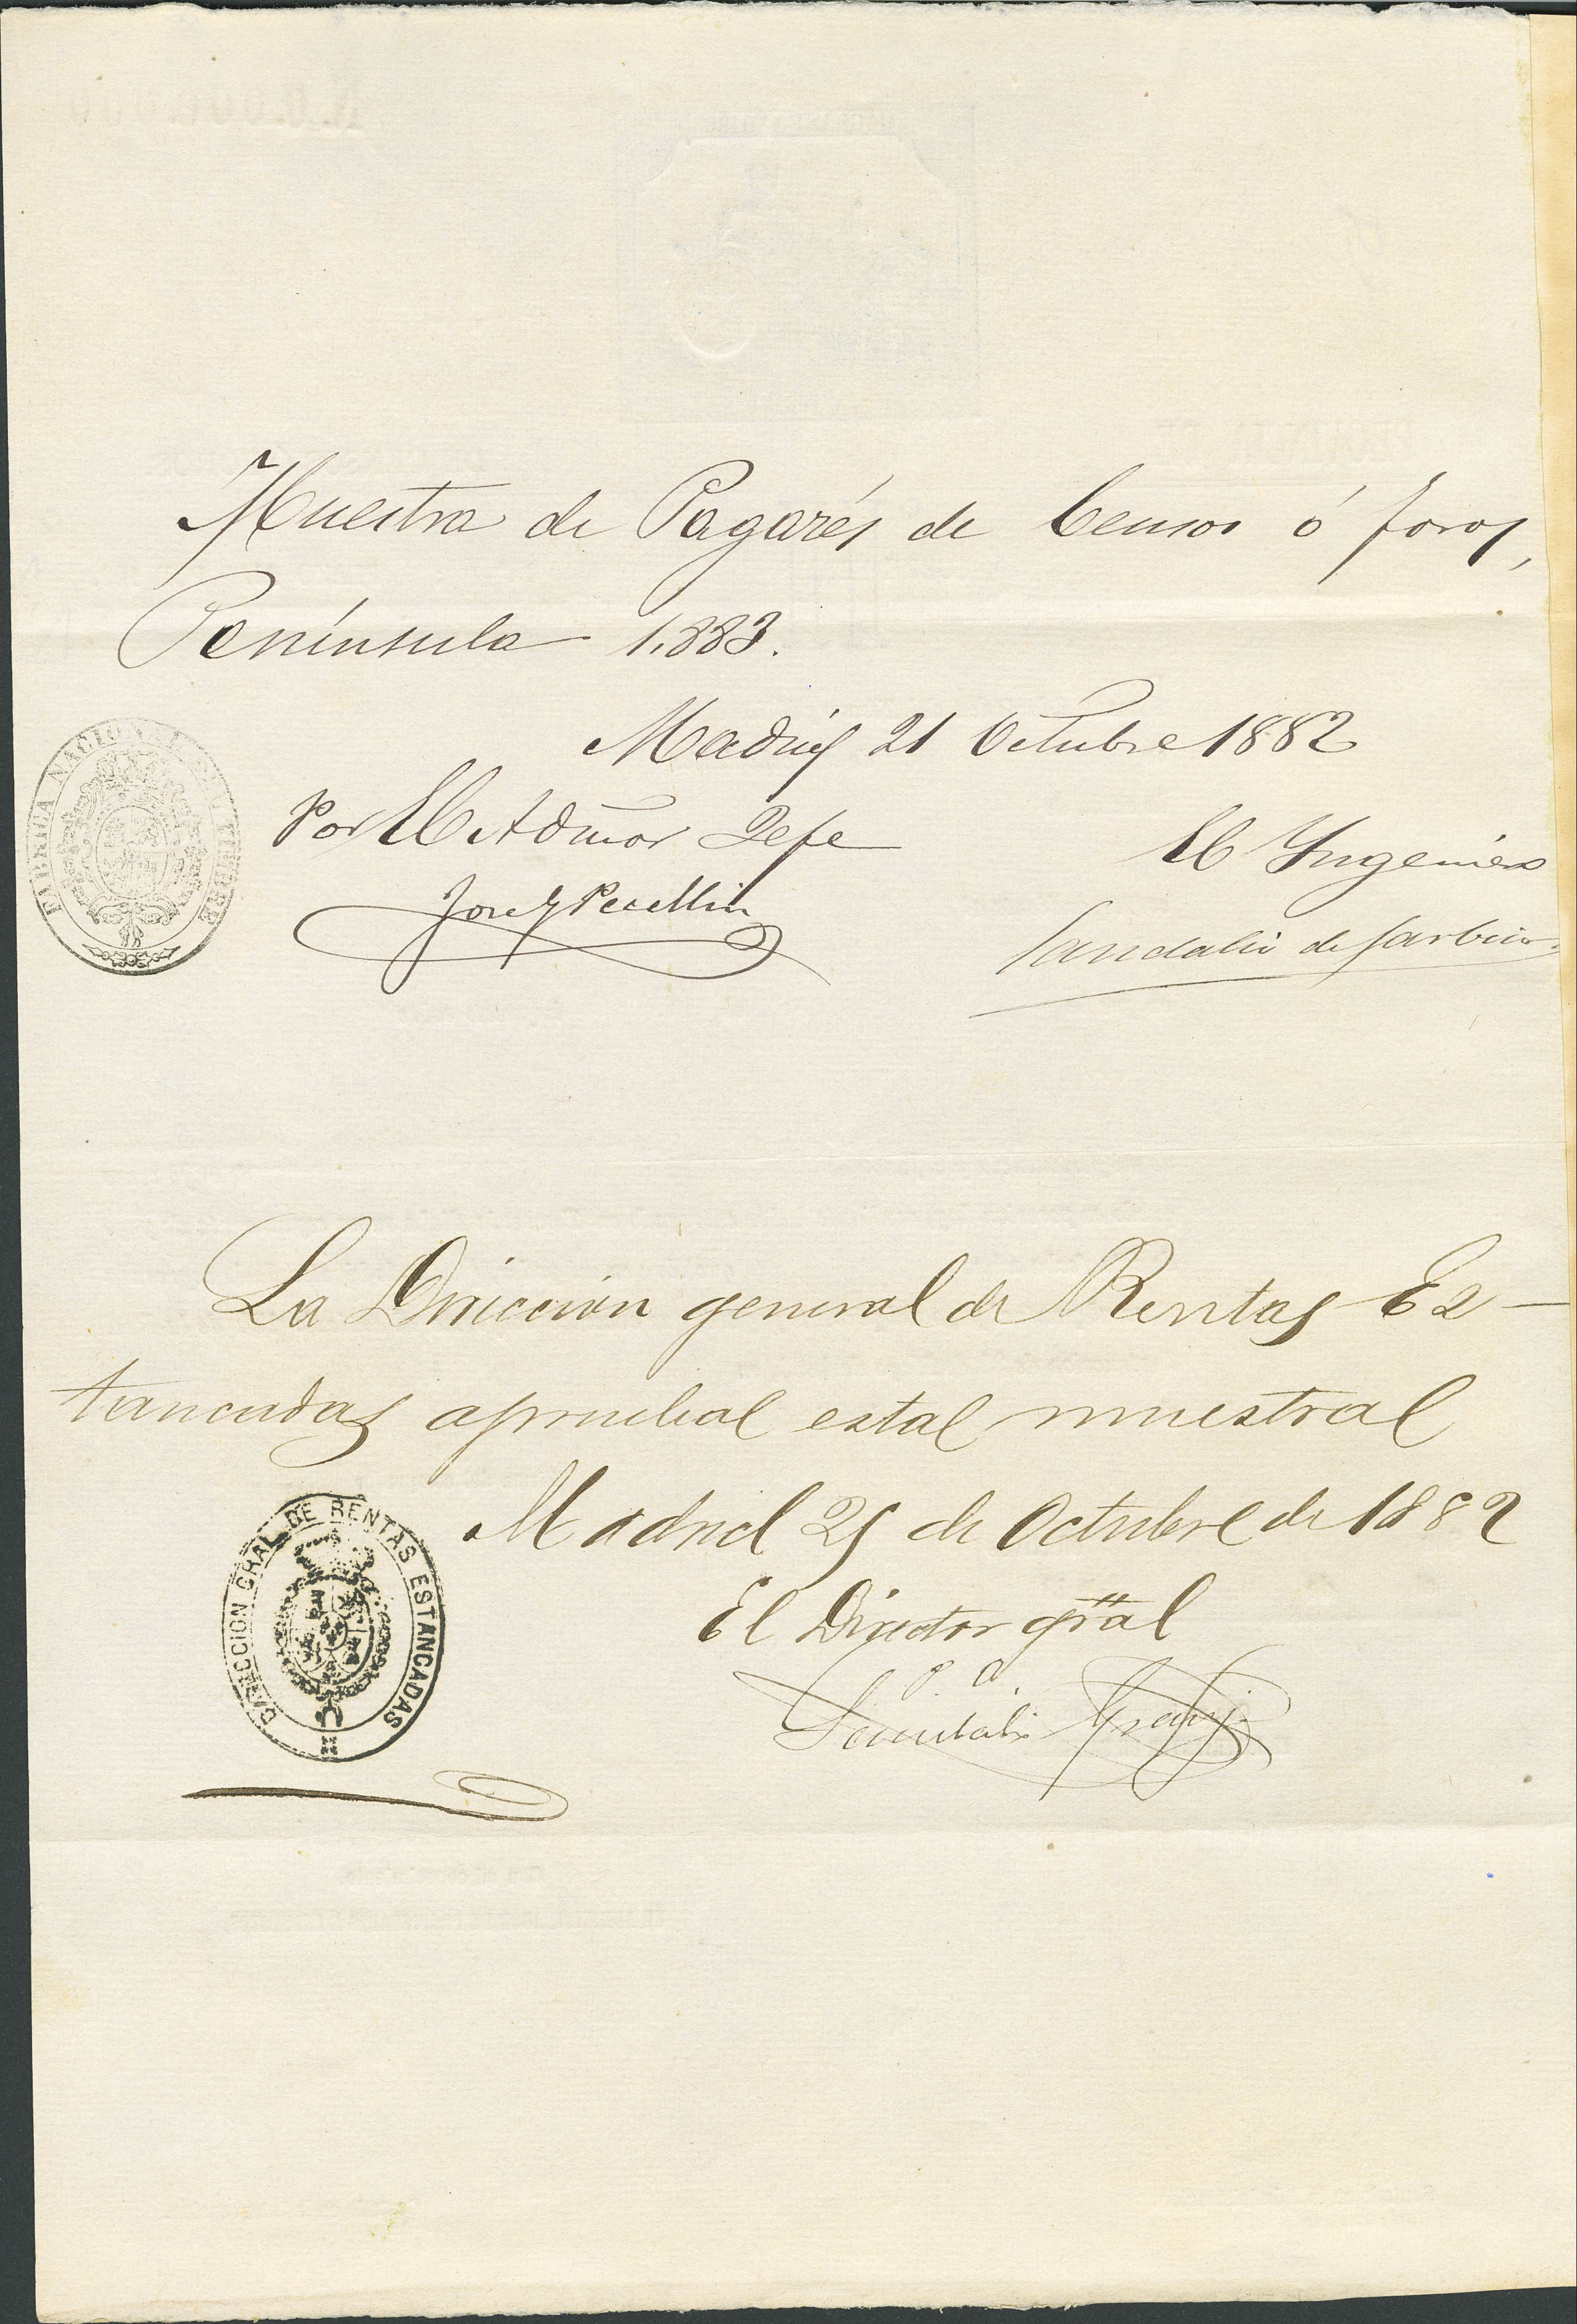 Muestra de Pagarés de Censos ó foros,
Península 1.883.
Madrid 21 Octubre 1882
Por El Admor Jefe
El Yngeniero
José Pecellin
Sandalio de
FABRICA NACIONAL DEL TIMBRE
La Dirección general de Rentas Es-
tancadas aprueba esta muestra
Madrid 25 de Octubre de 1882
El Director gral
P A
DIRECCION GRAL DE RENTAS ESTANCADAS